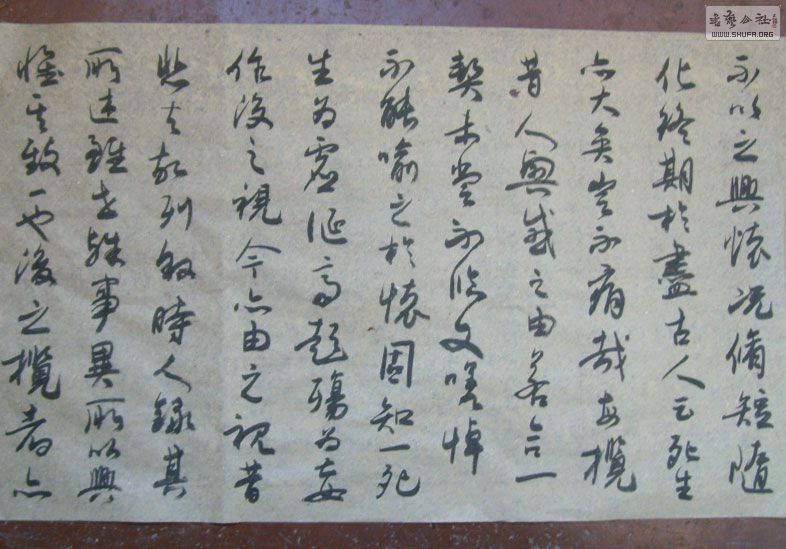 不以之興懷況脩短隨
化終期於盡古人云死生
亦大矣豈不痛哉每攬
昔人興感之由若合一
契未嘗不臨文嗟悼
不能喻之於懷固知一死
生為虛誕齊彭殤為妄
作後之視今亦由之視昔
悲夫故列敘時人錄其
所述雖世殊事異所以興
懷其致一也後之攬者亦
书艺公社
WWW.SHUFA.ORG